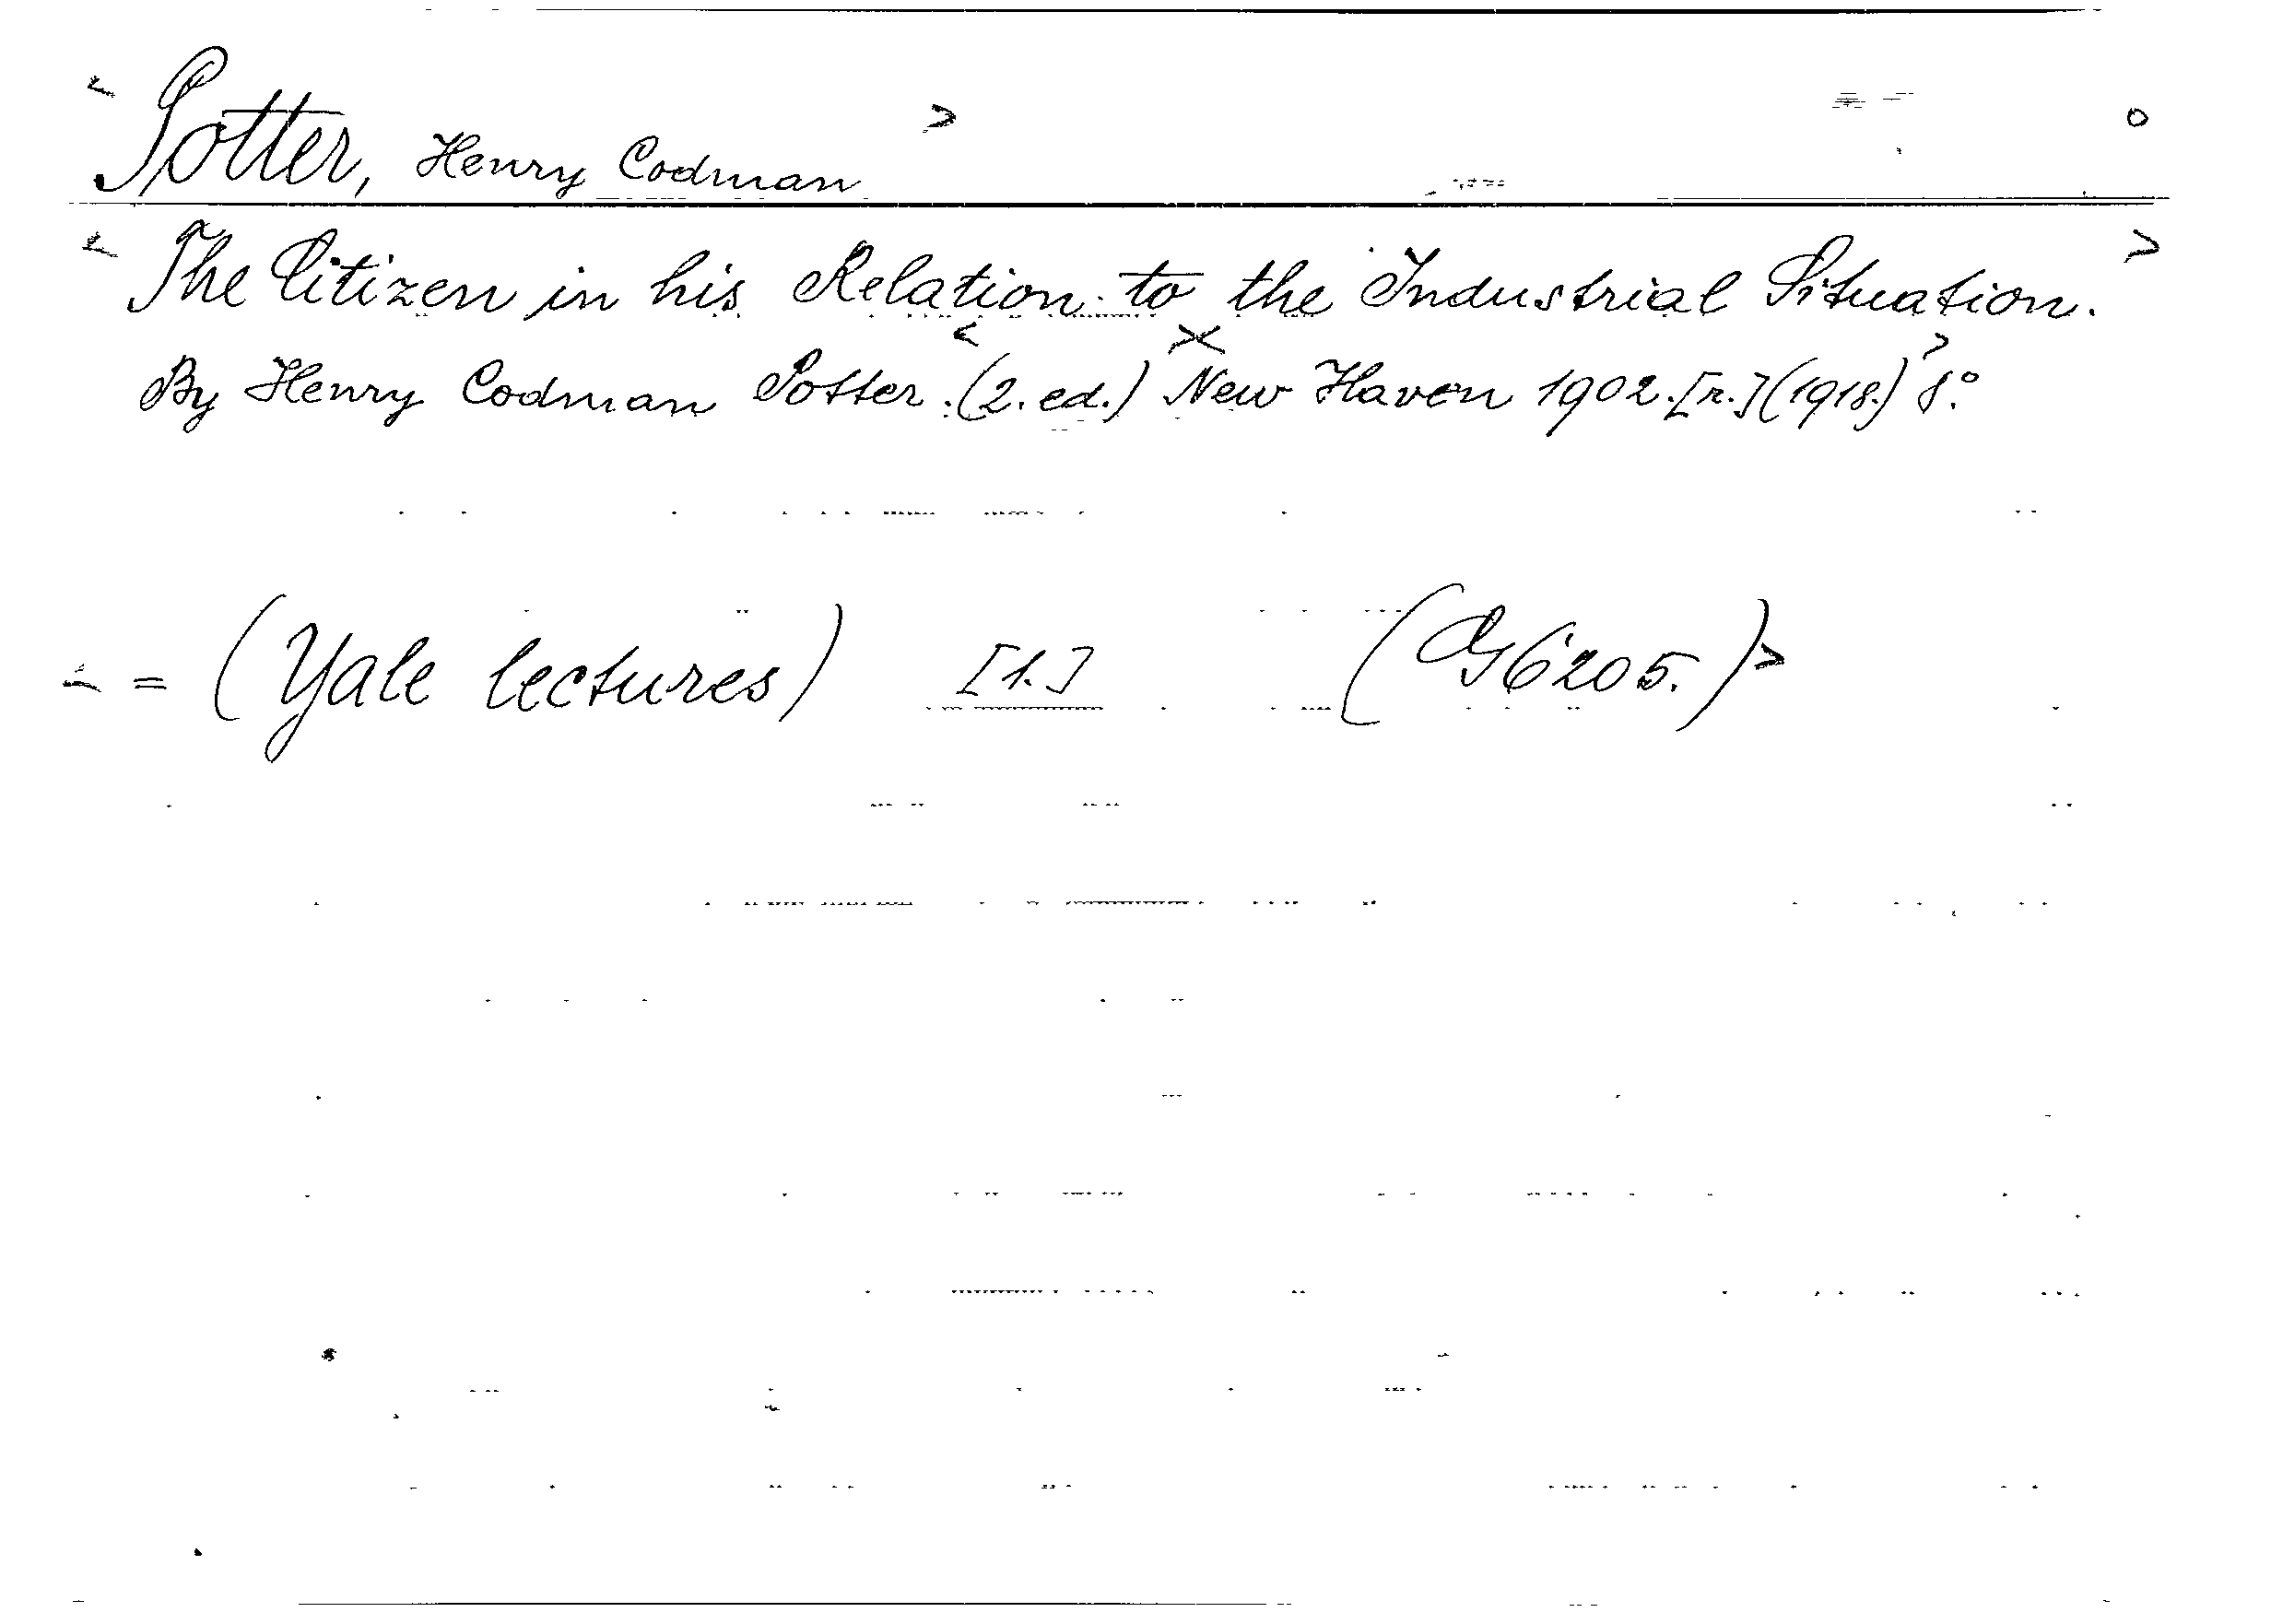 <Potter, Henry Codman>
<The Citizen in his Relation to the Industrial Situation.>
By Henry Codman Potter. <(2. ed.)>< New Haven 1902. [r.] (1918.)> 8.°
<= (Yale lectures) [1.] (G 6205.)>